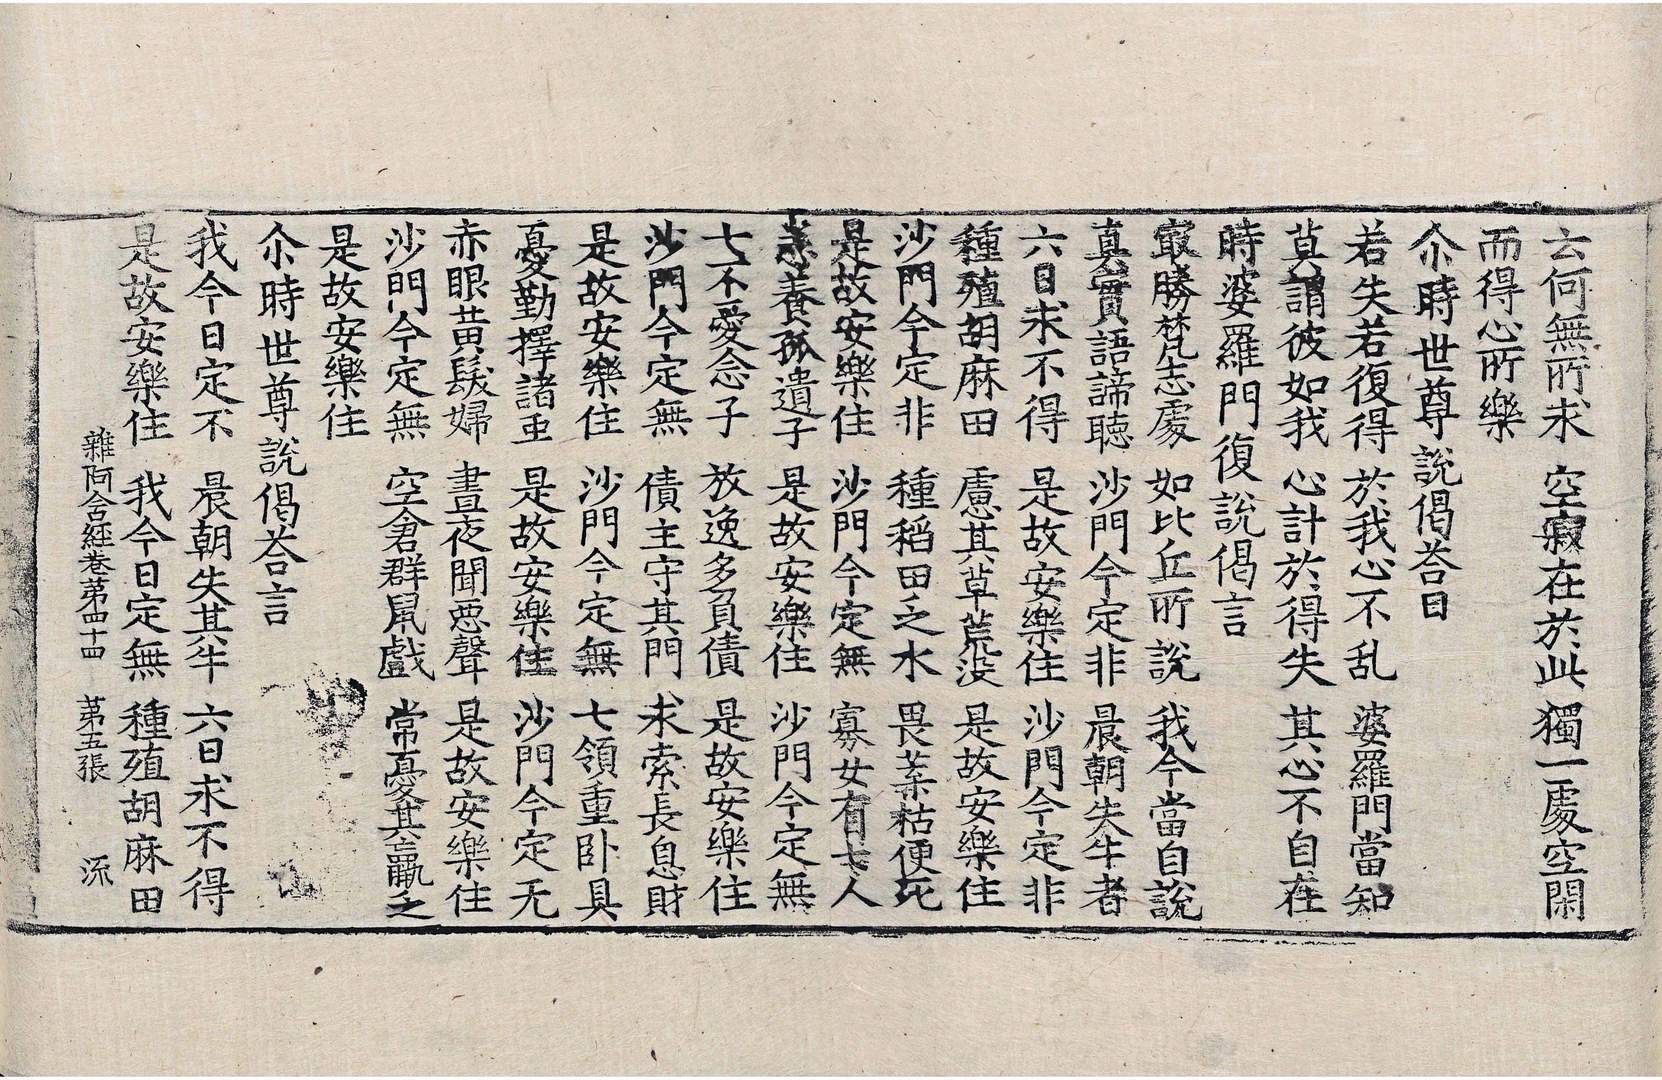 云何無所求　空寂在於此　獨一處空閑
而得心所樂
尒時世尊說偈荅曰
若失若復得　於我心不乱　婆羅門當知
莫謂彼如我　心計於得失　其心不自在
時婆羅門復說偈言
冣勝梵志處　如比丘所說　我今當自說
真實語諦聽　沙門今定非　晨朝失牛者
六日求不得　是故安樂住　沙門今定非
種殖胡麻田　慮其草荒没　是故安樂住
沙門今定非　種稻田乏水　畏葉枯便死
是故安樂住　沙門今定無　寡女有七人
恚養孤遺子　是故安樂住　沙門今定無
七不愛念子　放逸多負債　是故安樂住
沙門今定無　債主守其門　求索長息財
是故安樂住　沙門今定無　七領重卧具
憂勤擇諸虫　是故安樂住　沙門今定无
赤眼黄髮婦　晝夜聞惡聲　是故安樂住
沙門今定無　空倉群鼠戲　常憂其羸乏
是故安樂住
尒時世尊說偈荅言
我今日定不　晨朝失其牛　六日求不得
是故安樂住　我今日定無　種殖胡麻田
雜阿含經卷第四十四　第五張　流